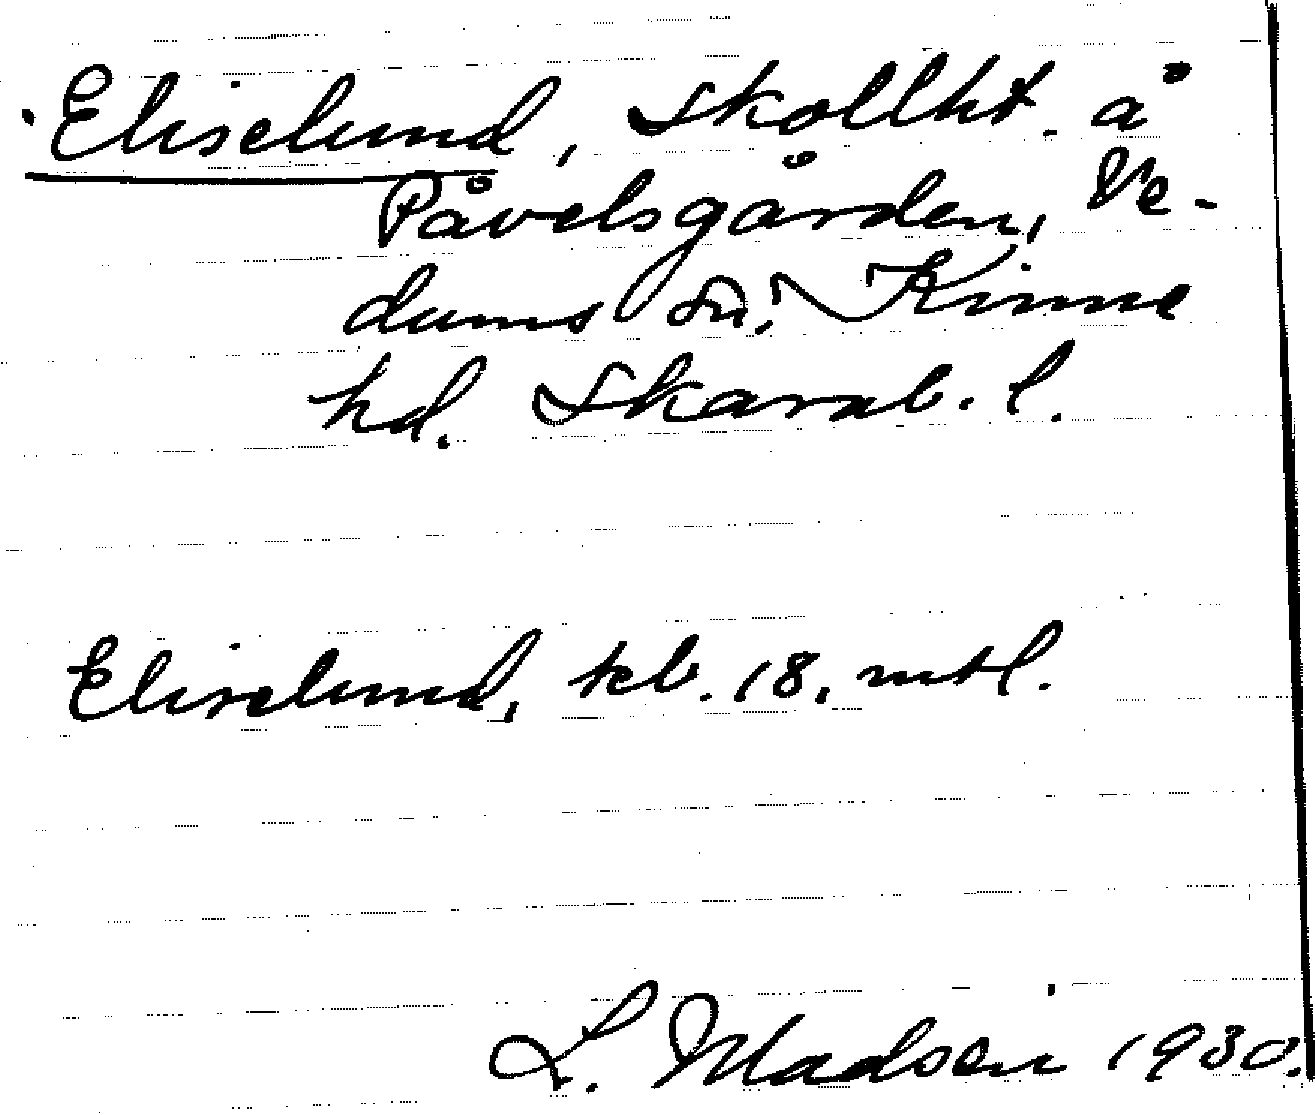 Eliselund, skollht. å
Påvelsgården, Ve-
dums sn. Kinne
hd. Skarab. l.
Eliselund, teb. 18. mtl.
L. Madsén 1930.